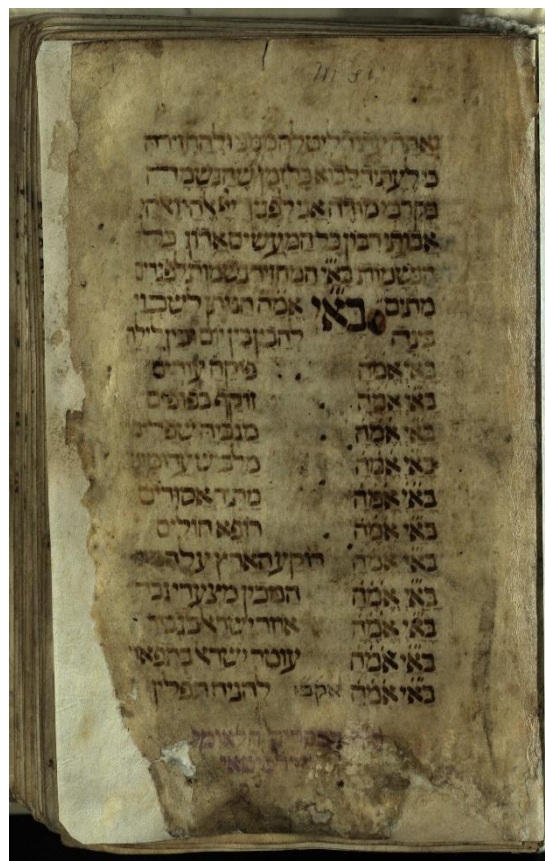 ואתה עתיד ליטלה ממני ולהחזירה
בי לעתיד לבוא כל זמן שהנשמה
בקרבי מודה אני לפניך יי אלהי ואלהי
אבותי רבון כל המעשים אדון כל
הנשמות בא״י המחזיר נשמות לפגרים
מתים בא״י אמה הנותן לשכוי
בינה להבין בין יום ובין לילה
בא״י אמ״ה פוקח עורים
בא״י אמ״ה זוקף כפופים
בא״י אמ״ה מגביה שפלים
בא״י אמ״ה מלביש ערומים
בא״י אמ״ה מתיר אסורים
בא״י אמ״ה רופא חולים
בא״י אמ״ה רוקע הארץ על
בא״י אמ״ה המכין מצעדי גבר
בא״י אמ״ה אוזר ישרא׳ בגבור
בא״י אמ״ה עוטר ישרא׳ בתפאר
בא״י אמ״ה אקבו להניח תפלין